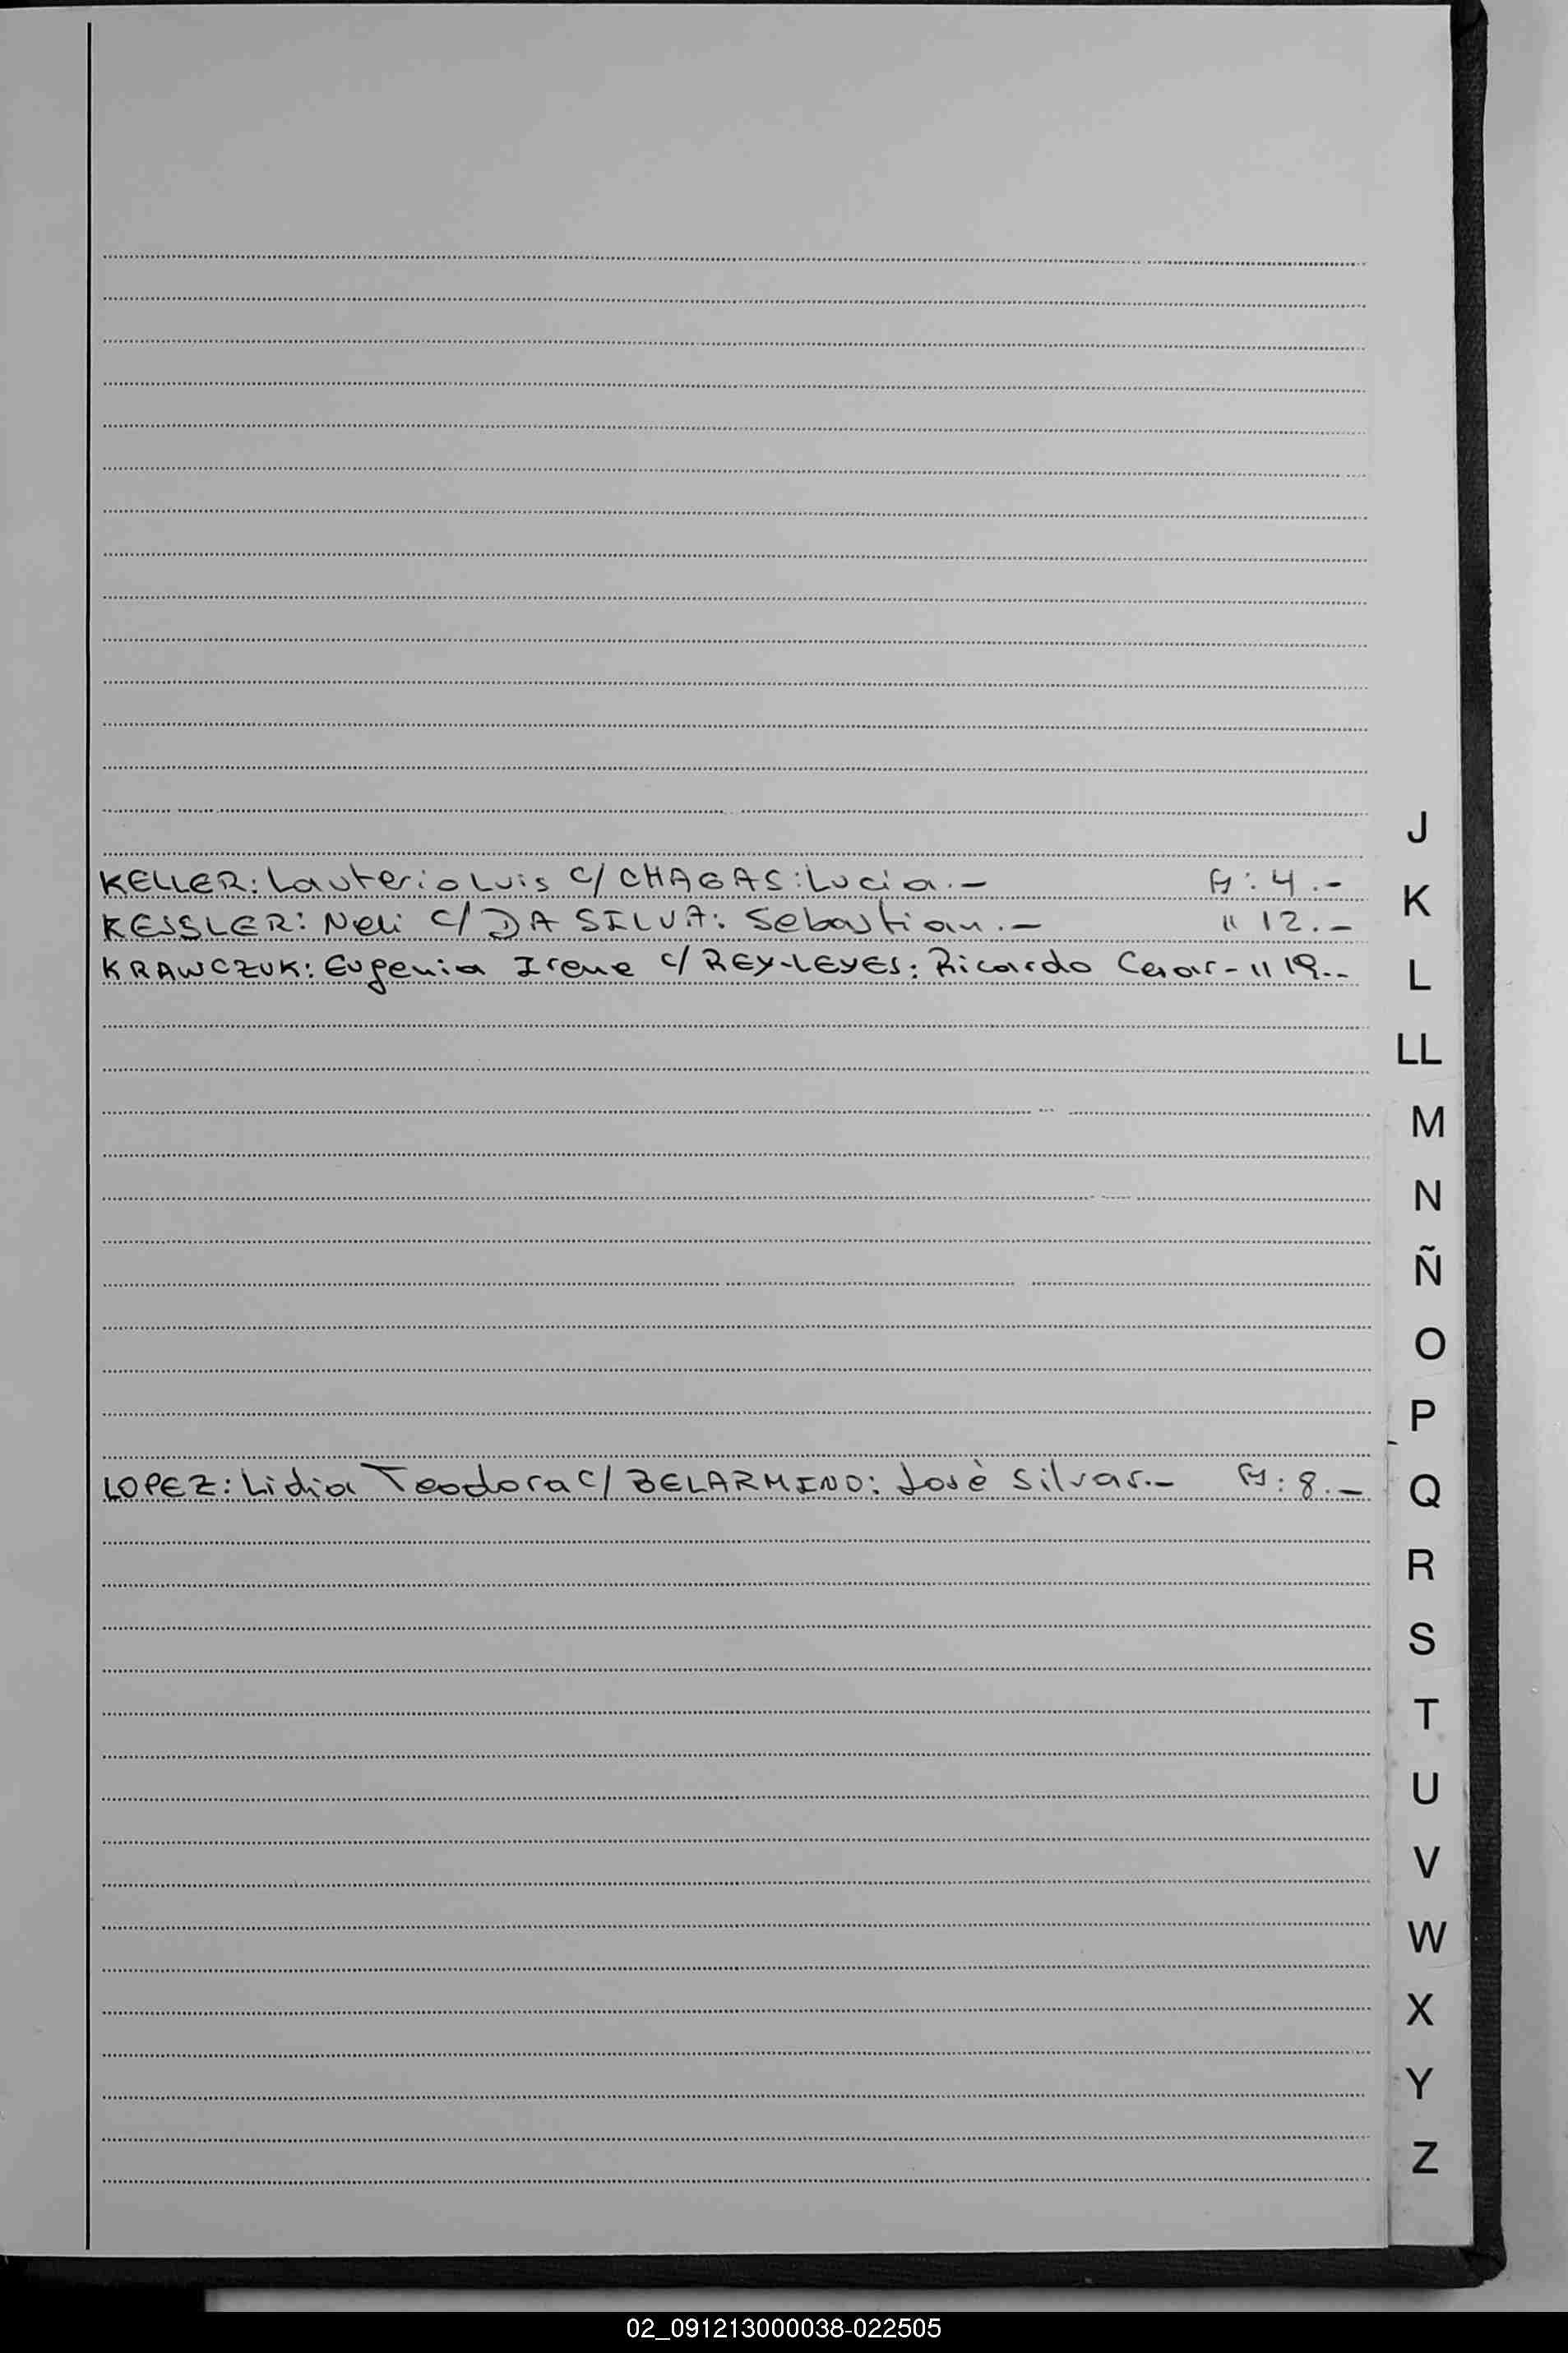 J
KELLER: Lauterio Luis c/ CHAGAS: Lucia.- : 4.-
K
KESSLER: Neli c/ DA SILVA: Sebastian.- " 12.-
KRAWCZUK: Eugenia Irene c/ REY-LEYES: Ricardo Cesar- " 19.-
L
LL
M
N
Ñ
O
P
LOPEZ: Lidia Teodora c/ BELARMINO: Josè Silvar.- : 8.-
Q
R
S
T
U
V
W
X
Y
Z
02_091213000038-022505